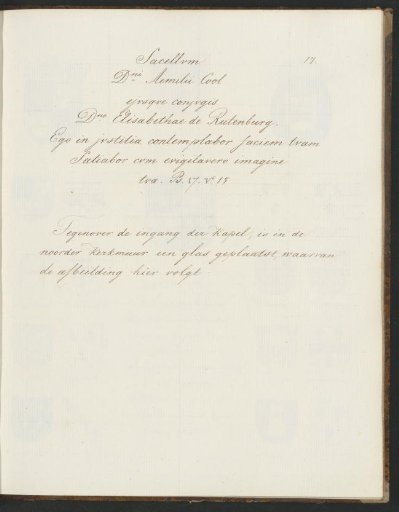 Sacellvm 17.
Dni Aemilii Cool
ejvsqve conjvgis
Dnae Elisabethae de Rutenburg.
Ego in jvstitia contemplabor faciem tvam
Satiabor cvm evigilavero imagine
tva. Ps. 17. vs 15
Tegenover de ingang der kapel, is in de
noorder kerkmuur een glas geplaatst, waarvan
de afbeelding hier volgt